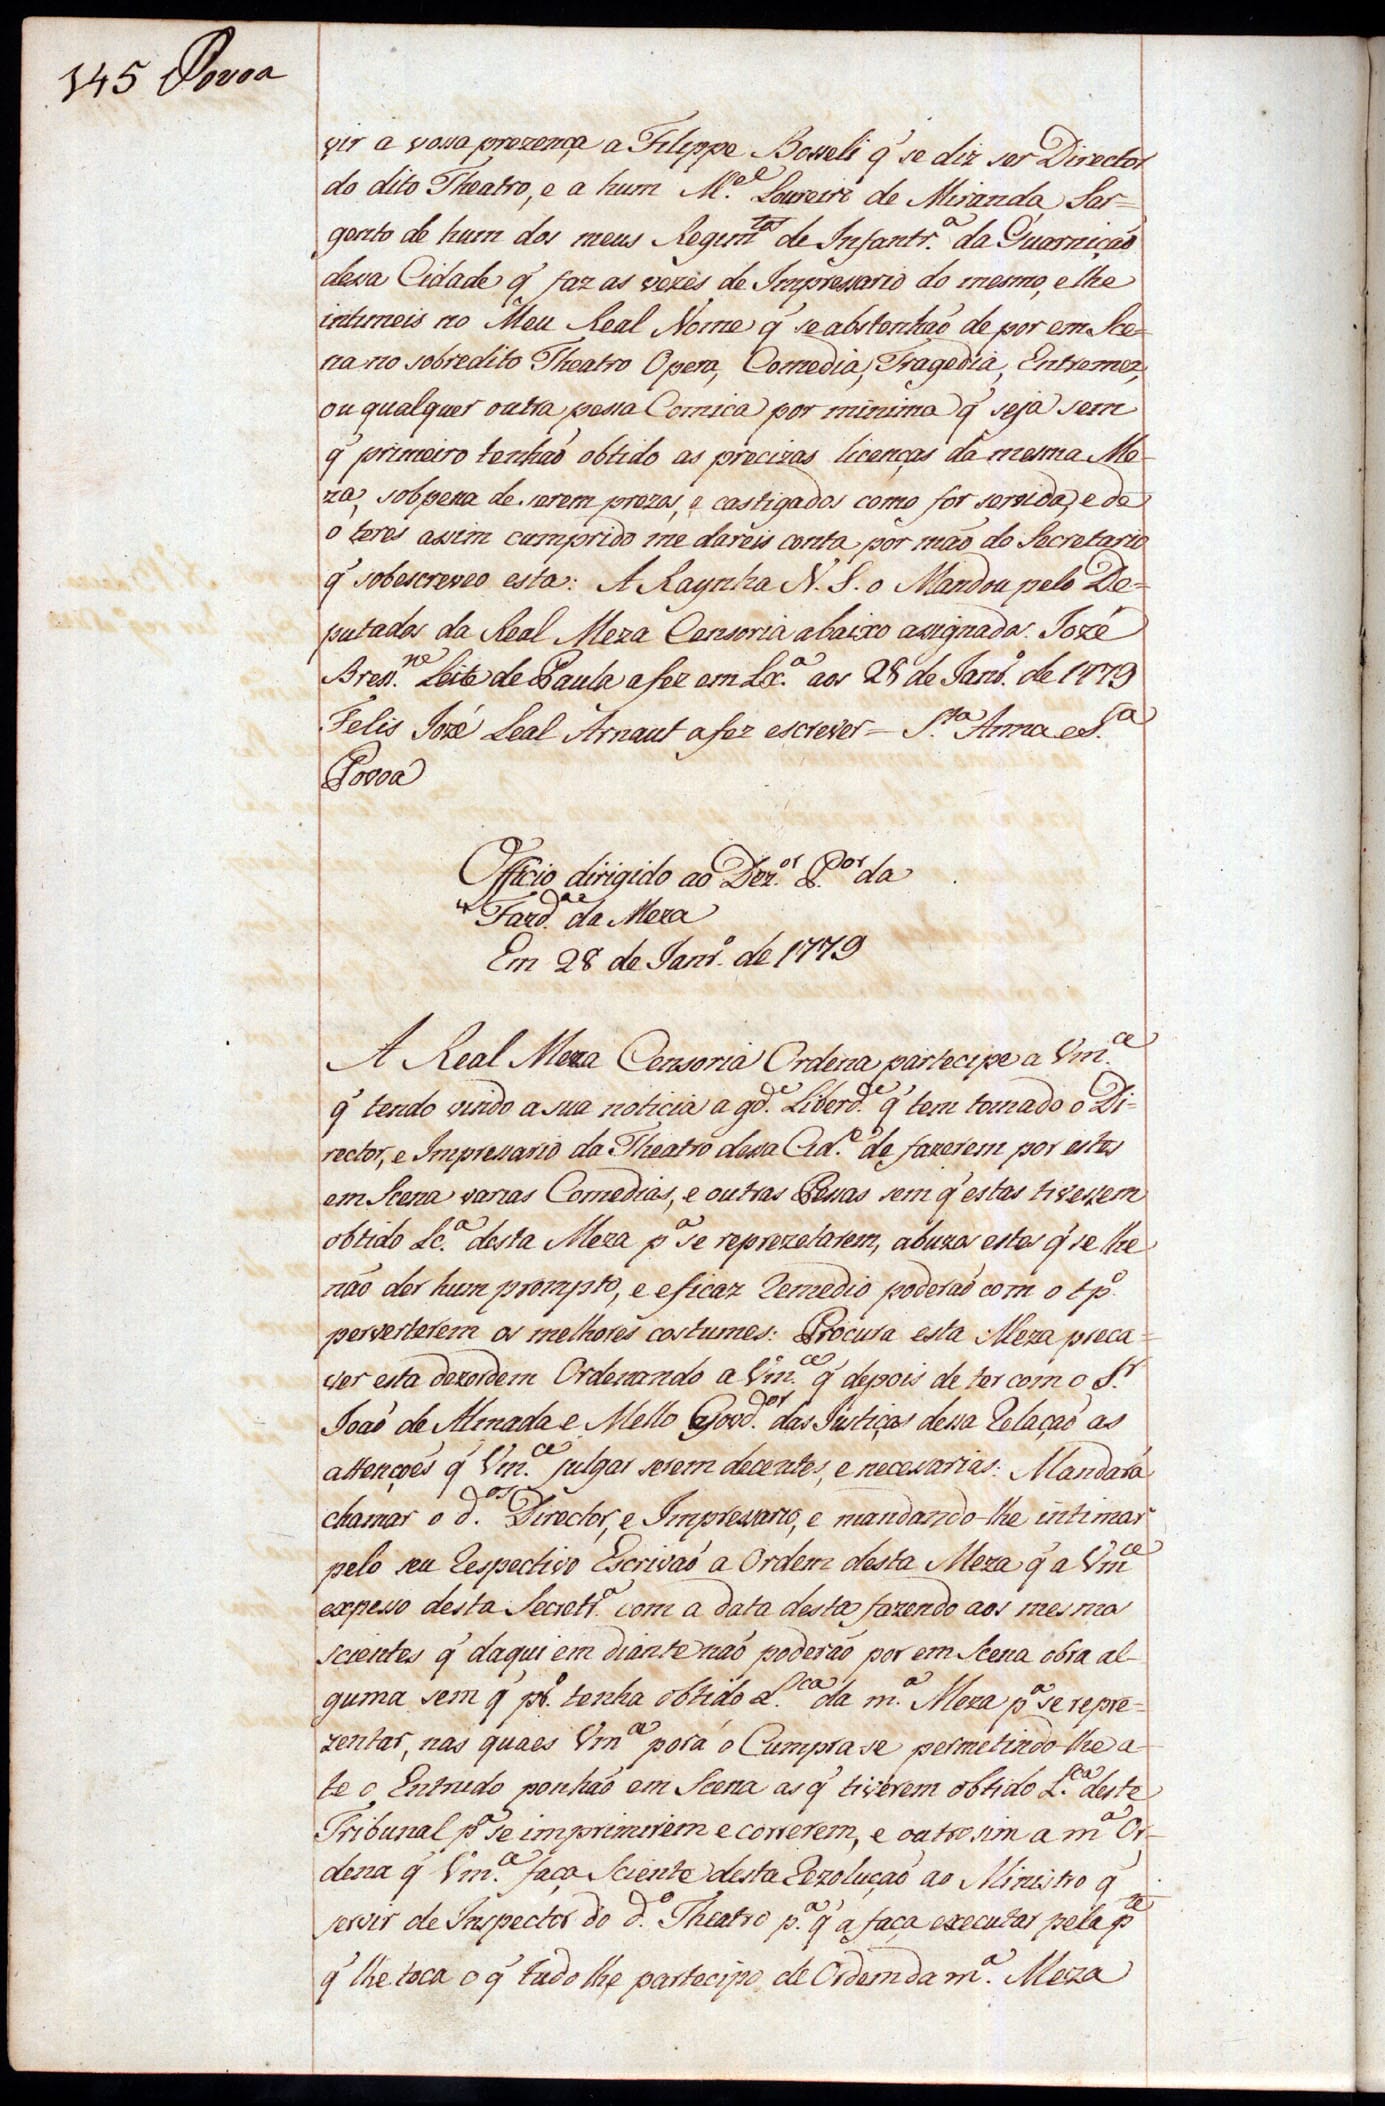 145 Povoa
vir a vossa prezença a Filippe Bosseli q̃ se diz ser Director
do dito Theatro, e a hum M.el Loureiro de Miranda Sar=
gento de hum dos meus Regim.tos de Infantr.a da Guarnição
dessa Cidade q̃ faz as vezes de Impressario do mesmo, e lhe
intimeis no Meu Real Nome q̃ se abstenhão de por em Sce=
na no sobredito Theatro Opera, Comedia, Tragedia, Entremez,
ou qualquer outra pessa Comica por minima q̃ seja sem
q̃ primeiro tenhão obtido as precizas licenças da mesma Me-
za, sobpena de serem prezos, e castigados como for servida, e de
o teres assim cumprido me dareis conta por mão do Secretario
q̃ sobescreveo esta: A Raynha N. S. o Mandou pelo De=
putados da Real Meza Censoria abaixo assignados. Jozé
Bress.ne Leite de Paula a fez em Lx.a aos 28 de Janr.o de 1779
Felis Jozé Leal Arnaut a fez escrever = S.ta Anna e S.a
Povoa
Officio dirigido ao Dez.or P.dor da
Fazd.ae da Meza
Em 28 de Janr.o de 1779
A Real Meza Censoria Ordena partecipe a Vm.ce
q̃ tendo vindo a sua noticia a gd.e Liberd.e q̃ tem tomado o Di=
rector, e Impressario da Theatro dessa Cid.e de fazerem por estes
em Scena varias Comedias, e outras Pessas sem q̃ estas tivessem
obtido Lc.a desta Meza p.a se reprezetarem, abuzos estes q̃ se lhe
não der hum prompto, e eficaz Remedio poderão com o tp.o
perverterem os melhores costumes: Procura esta Meza preca=
ver esta dezordem Ordenando a Vm.ce q̃ depois de ter com o S.r
João de Almada e Mello Govd.or das Justiças dessa Relação as
attenções q̃ Vm.ce julgar serem decentes, e necessarias: Mandará
chamar o d.os Director, e Impressario, e mandando-lhe intimar
pelo seu Respectivo Escrivão a Ordem desta Meza q̃ a Vm.ce
expesso desta Secretr.a com a data desta fazendo aos mesmos
scientes q̃ daqui em diante não poderão por em Scena obra al-
guma sem q̃ pr.o tenha obtido L.ca da m.a Meza p.a se repre=
zentar, nas quaes Vm.ce porá o Cumprase permetindo-lhe a-
te o Entrudo ponhão em Scena as q̃ tiverem obtido L.ca deste
Tribunal p.a se imprimirem e correrem, e outrosim a m.a Or-
dena q̃ Vm.ce faça Sciente desta Rezolução ao Ministro q̃
servir de Inspector do d.o Theatro p.a q̃ a faça executar pela p.te
q̃ lhe toca o q̃ tudo lhe partecipo de Ordem da m.a Meza